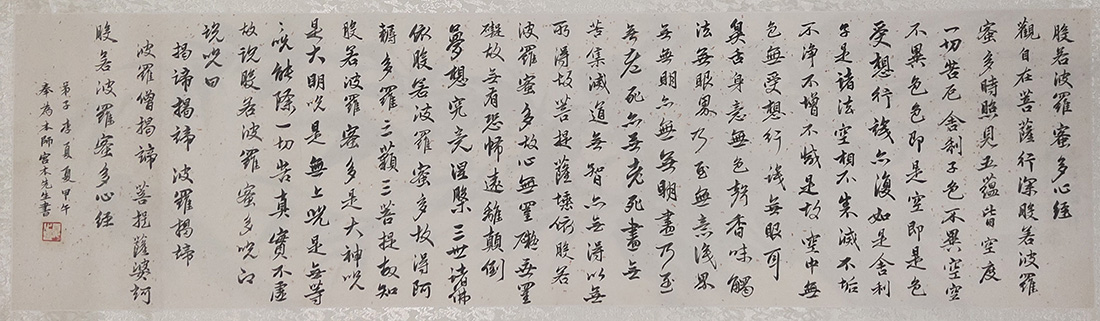 般若波羅蜜多心經
觀自在菩薩行深般若波羅
蜜多時照見五蘊皆空度
一切苦厄舍利子色不異空空
不異色色即是空空即是色
受想行識亦復如是舍利
子是諸法空相不生滅不垢
不淨不增不減是故空中無
色無受想行識無眼耳
鼻舌身意無色聲香味觸
法無眼界乃至無意識界
無無明亦無無明盡乃至
無老死亦無老死盡無
苦集滅道無智亦無得以無
所得故菩提薩埵依般若
波羅蜜多故心無罣礙無罣
礙故無有恐怖遠離顛倒
夢想究竟涅槃三世諸佛
依般若波羅蜜多故得阿
耨多羅三藐三菩提故知
般若波羅蜜多是大神咒
是大明咒是無上咒是無等
咒能除一切苦真實不虛
故說般若波羅蜜多咒即
說咒曰
揭諦揭諦 波羅揭諦
波羅僧揭諦 菩提薩婆訶
般若波羅蜜多心經
弟子李夏夏甲午
奉為本師宮木先生書